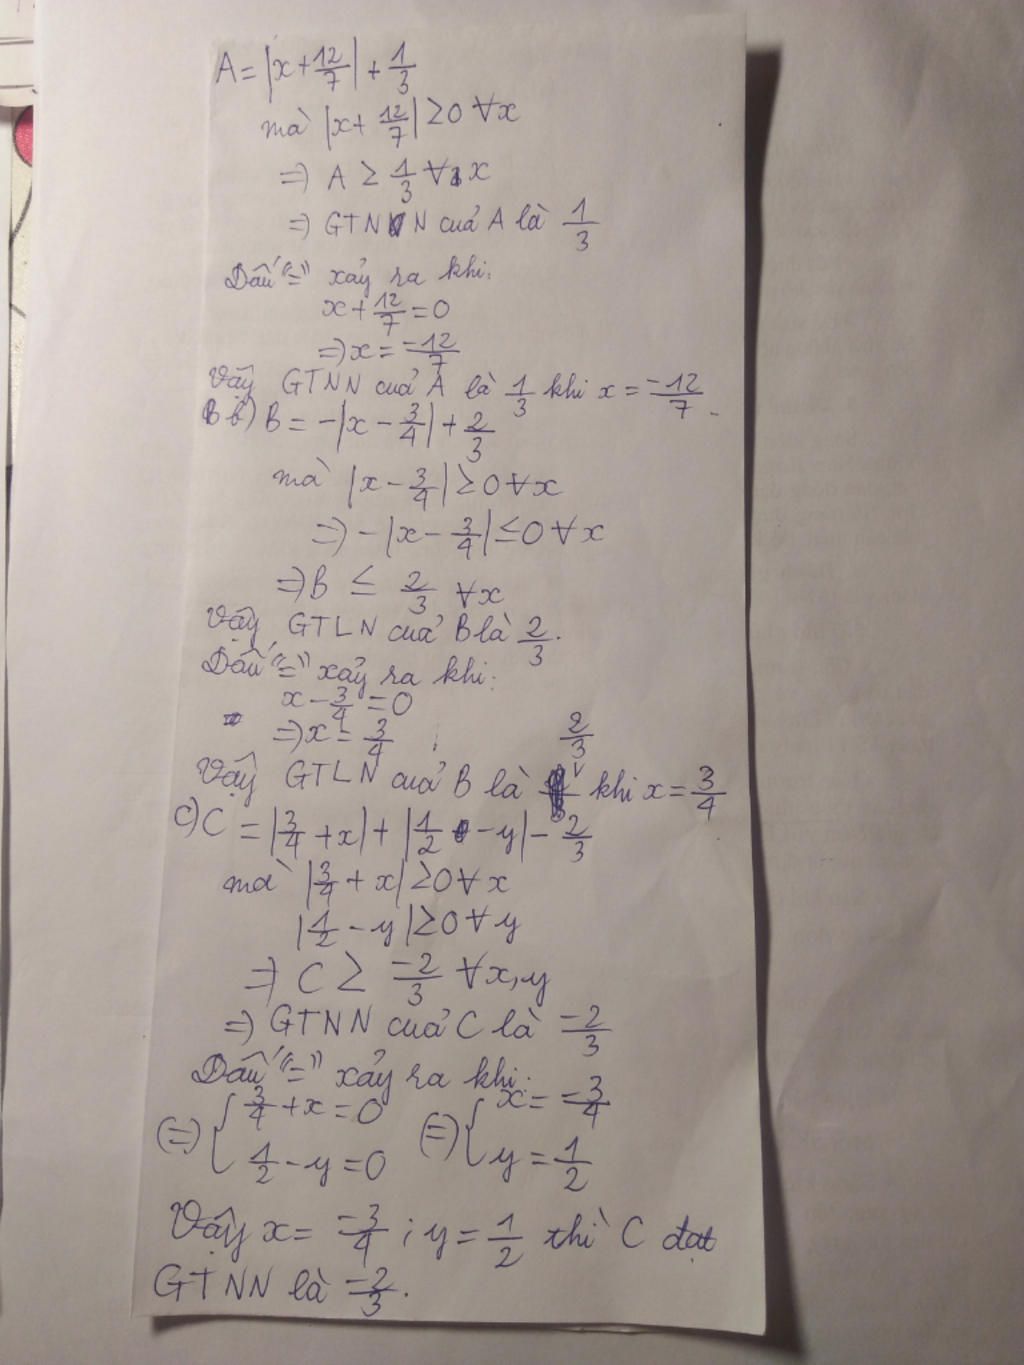 A = |x + 12/7| + 1/3
mà |x + 12/7| ≥ 0 ∀x
=> A ≥ 1/3 ∀x
=> GTNN của A là 1/3
Dấu "=" xảy ra khi:
x + 12/7 = 0
=> x = -12/7
Vậy GTNN của A là 1/3 khi x = -12/7.
b) B = -|x - 3/4| + 2/3
mà |x - 3/4| ≥ 0 ∀x
=> -|x - 3/4| ≤ 0 ∀x
=> B ≤ 2/3 ∀x
Vậy GTLN của B là 2/3.
Dấu "=" xảy ra khi:
x - 3/4 = 0
=> x = 3/4
Vậy GTLN của B là 2/3 khi x = 3/4
c) C = |3/4 + x| + |1/2 - y| - 2/3
mà |3/4 + x| ≥ 0 ∀x
|1/2 - y| ≥ 0 ∀y
=> C ≥ -2/3 ∀x,y
=> GTNN của C là -2/3
Dấu "=" xảy ra khi:
(=) { 3/4 + x = 0 (=) { x = -3/4
1/2 - y = 0 y = 1/2
Vậy x = -3/4 ; y = 1/2 thì C đạt
GTNN là -2/3.